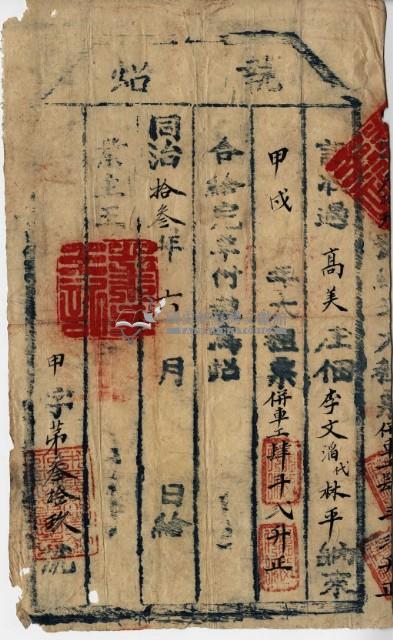 執照
計收過高美庄佃李文滔代林平納粟
甲戌年大租粟併車工肆斗八升正
合給完單付執為照
同治拾叁年六月 日給
業主王
甲字第叁拾玖號